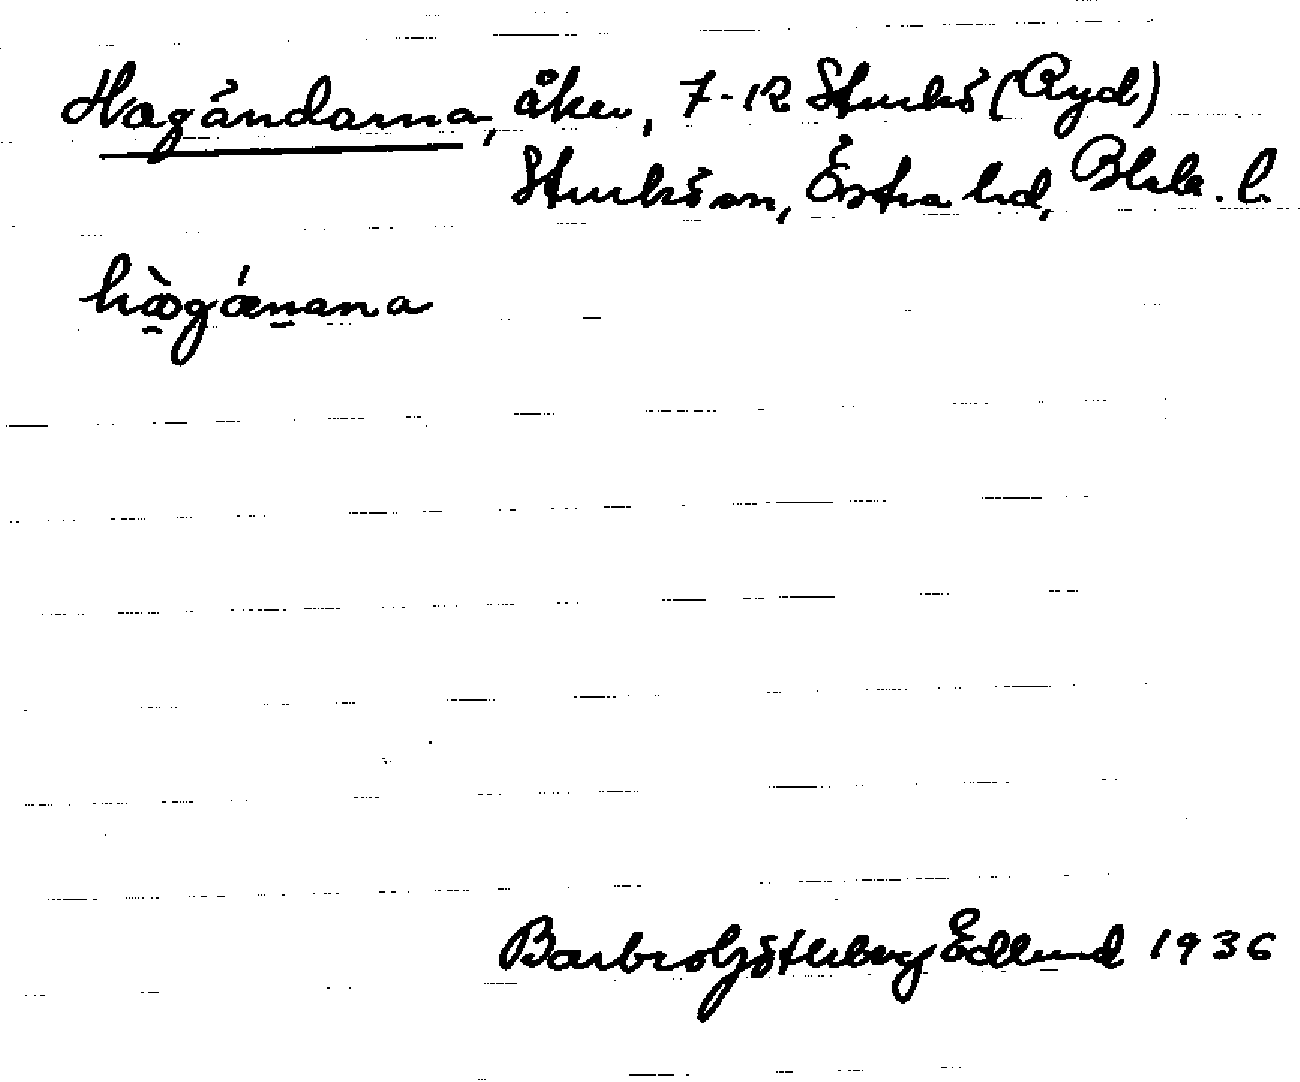 Hagändarna, åker, 7-12 Sturkö (Ryd)
Sturkö sn, Östra hd, Blek. l.
hàgǽnana
Barbro Göterberg Edlund 1936